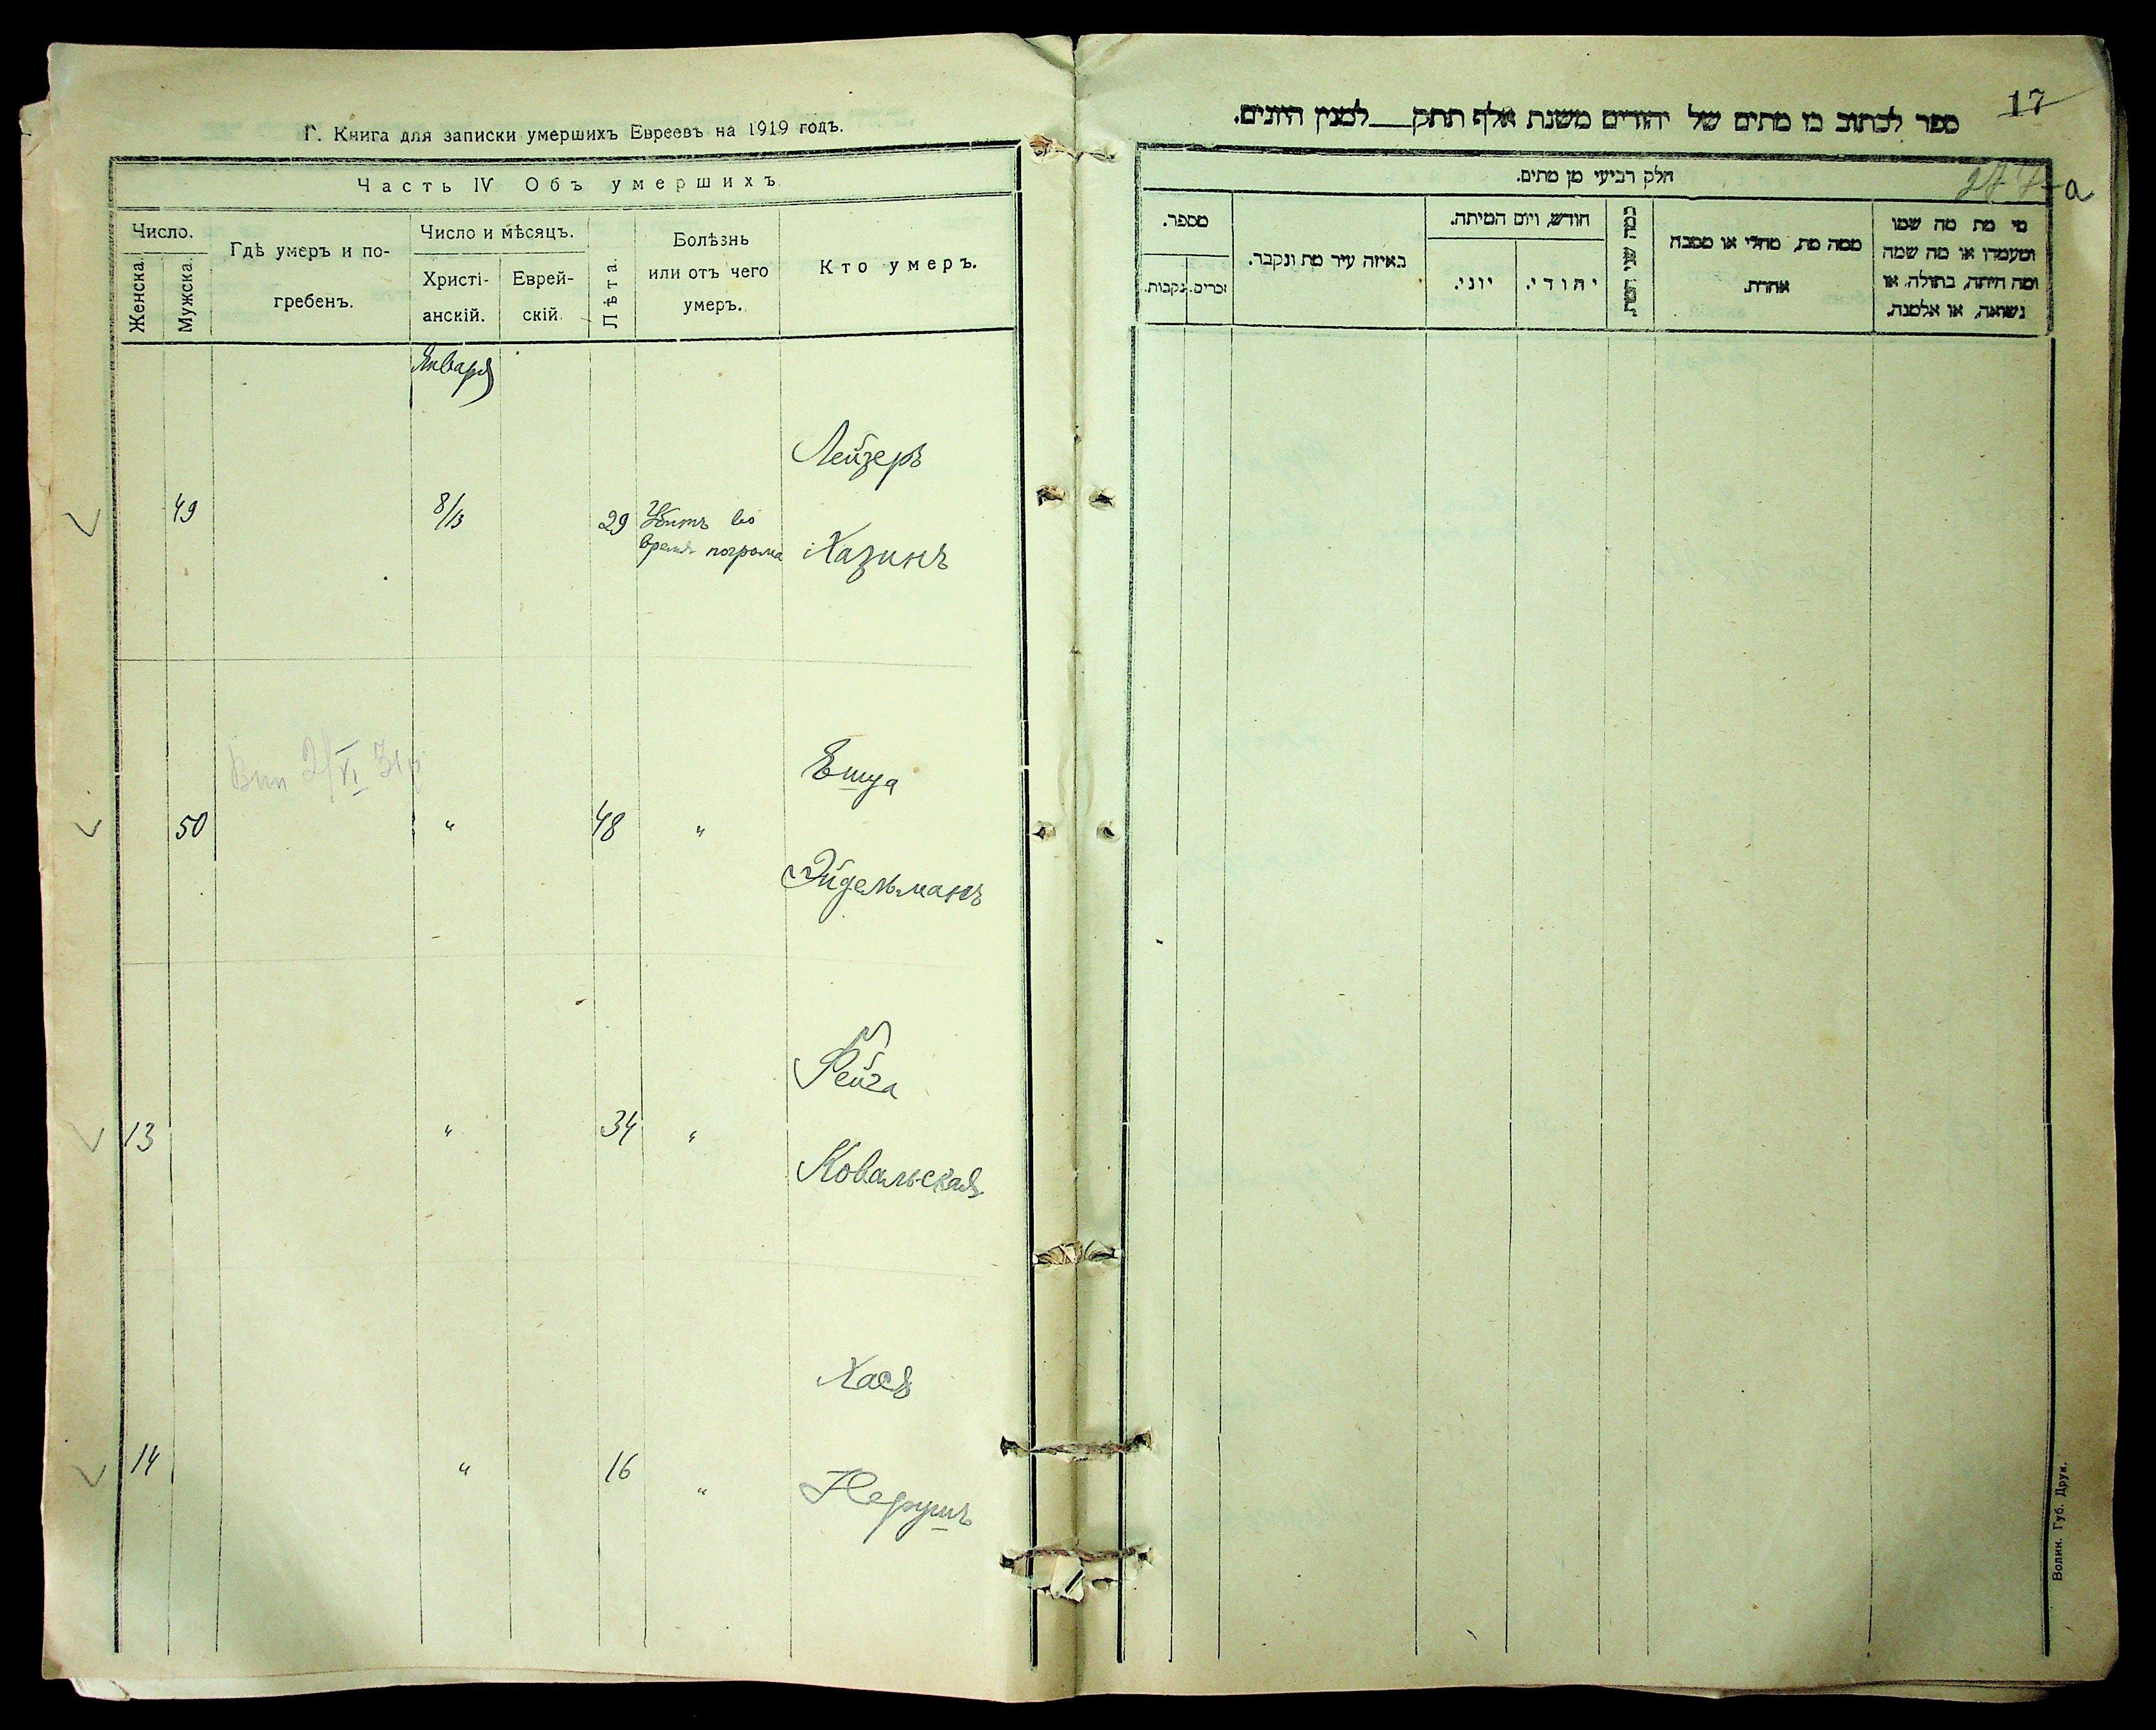 Г. Книга для записки умершихъ Евреевъ на 1919 годъ.
Часть IV Объ умершихъ
Число.
Женска.
Мужска.
Гдѣ умеръ и по-
гребенъ.
Число и мѣсяцъ.
Христі-
анскій.
Еврей-
скій.
Лѣта.
Болѣзнь
или отъ чего
умеръ.
Кто умеръ.
Января
49
8/13
29
Убитъ во
время погрома
Лейзеръ
Хазинъ
50
"
48
"
Ешуа
Эйдельманъ
13
"
34
"
Фейга
Ковальская
14
"
16
"
Хася
Нерушъ
17
ספר לכתוב בו מתים של יהודים משנת אלף תתק___למנין היונים.
а
חלק רביעי מן מתים.
מספר.
נקבות.
זכרים.
באיזה עיר מת ונקבר.
חודש, ויום המיתה.
יוני.
יהודי.
כמה שני המת
ממה מת, מחלי או מסבה
אחרת.
מי מת מה שמו
ומעמדו או מה שמה
ומה היתה, בתולה, או
נשואה, או אלמנה.
Волин. Губ. Друк.